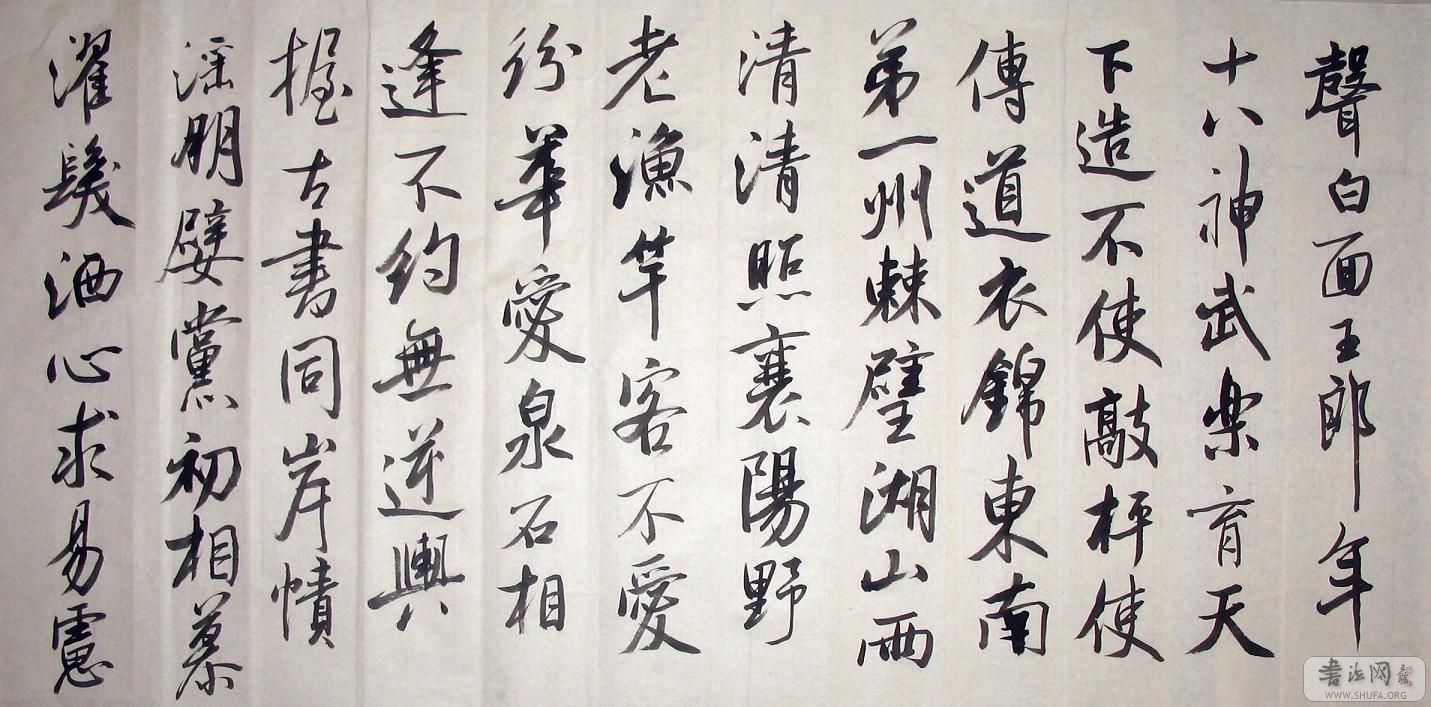 聲白面王郎年
十八神武楽育天
下造不使敲枰使
傳道衣錦東南
弟一州棘璧湖山兩
清清照襄陽野
老漁竿客不愛
紛華愛泉石相
逢不約無逆輿
握古書同岸幘
淫朋嬖黨初相慕
濯髮洒心求易慮
书法网
WWW.SHUFA.ORG